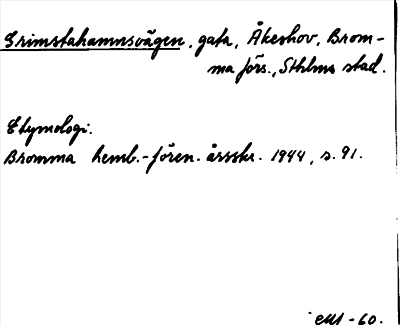 Grimstahamnsvägen, gata, Åkeshov, Brom-
ma förs., Sthlms stad.
Etymologi.
Bromma hemb.-fören. årsskr. 1944, s. 91.
-60.